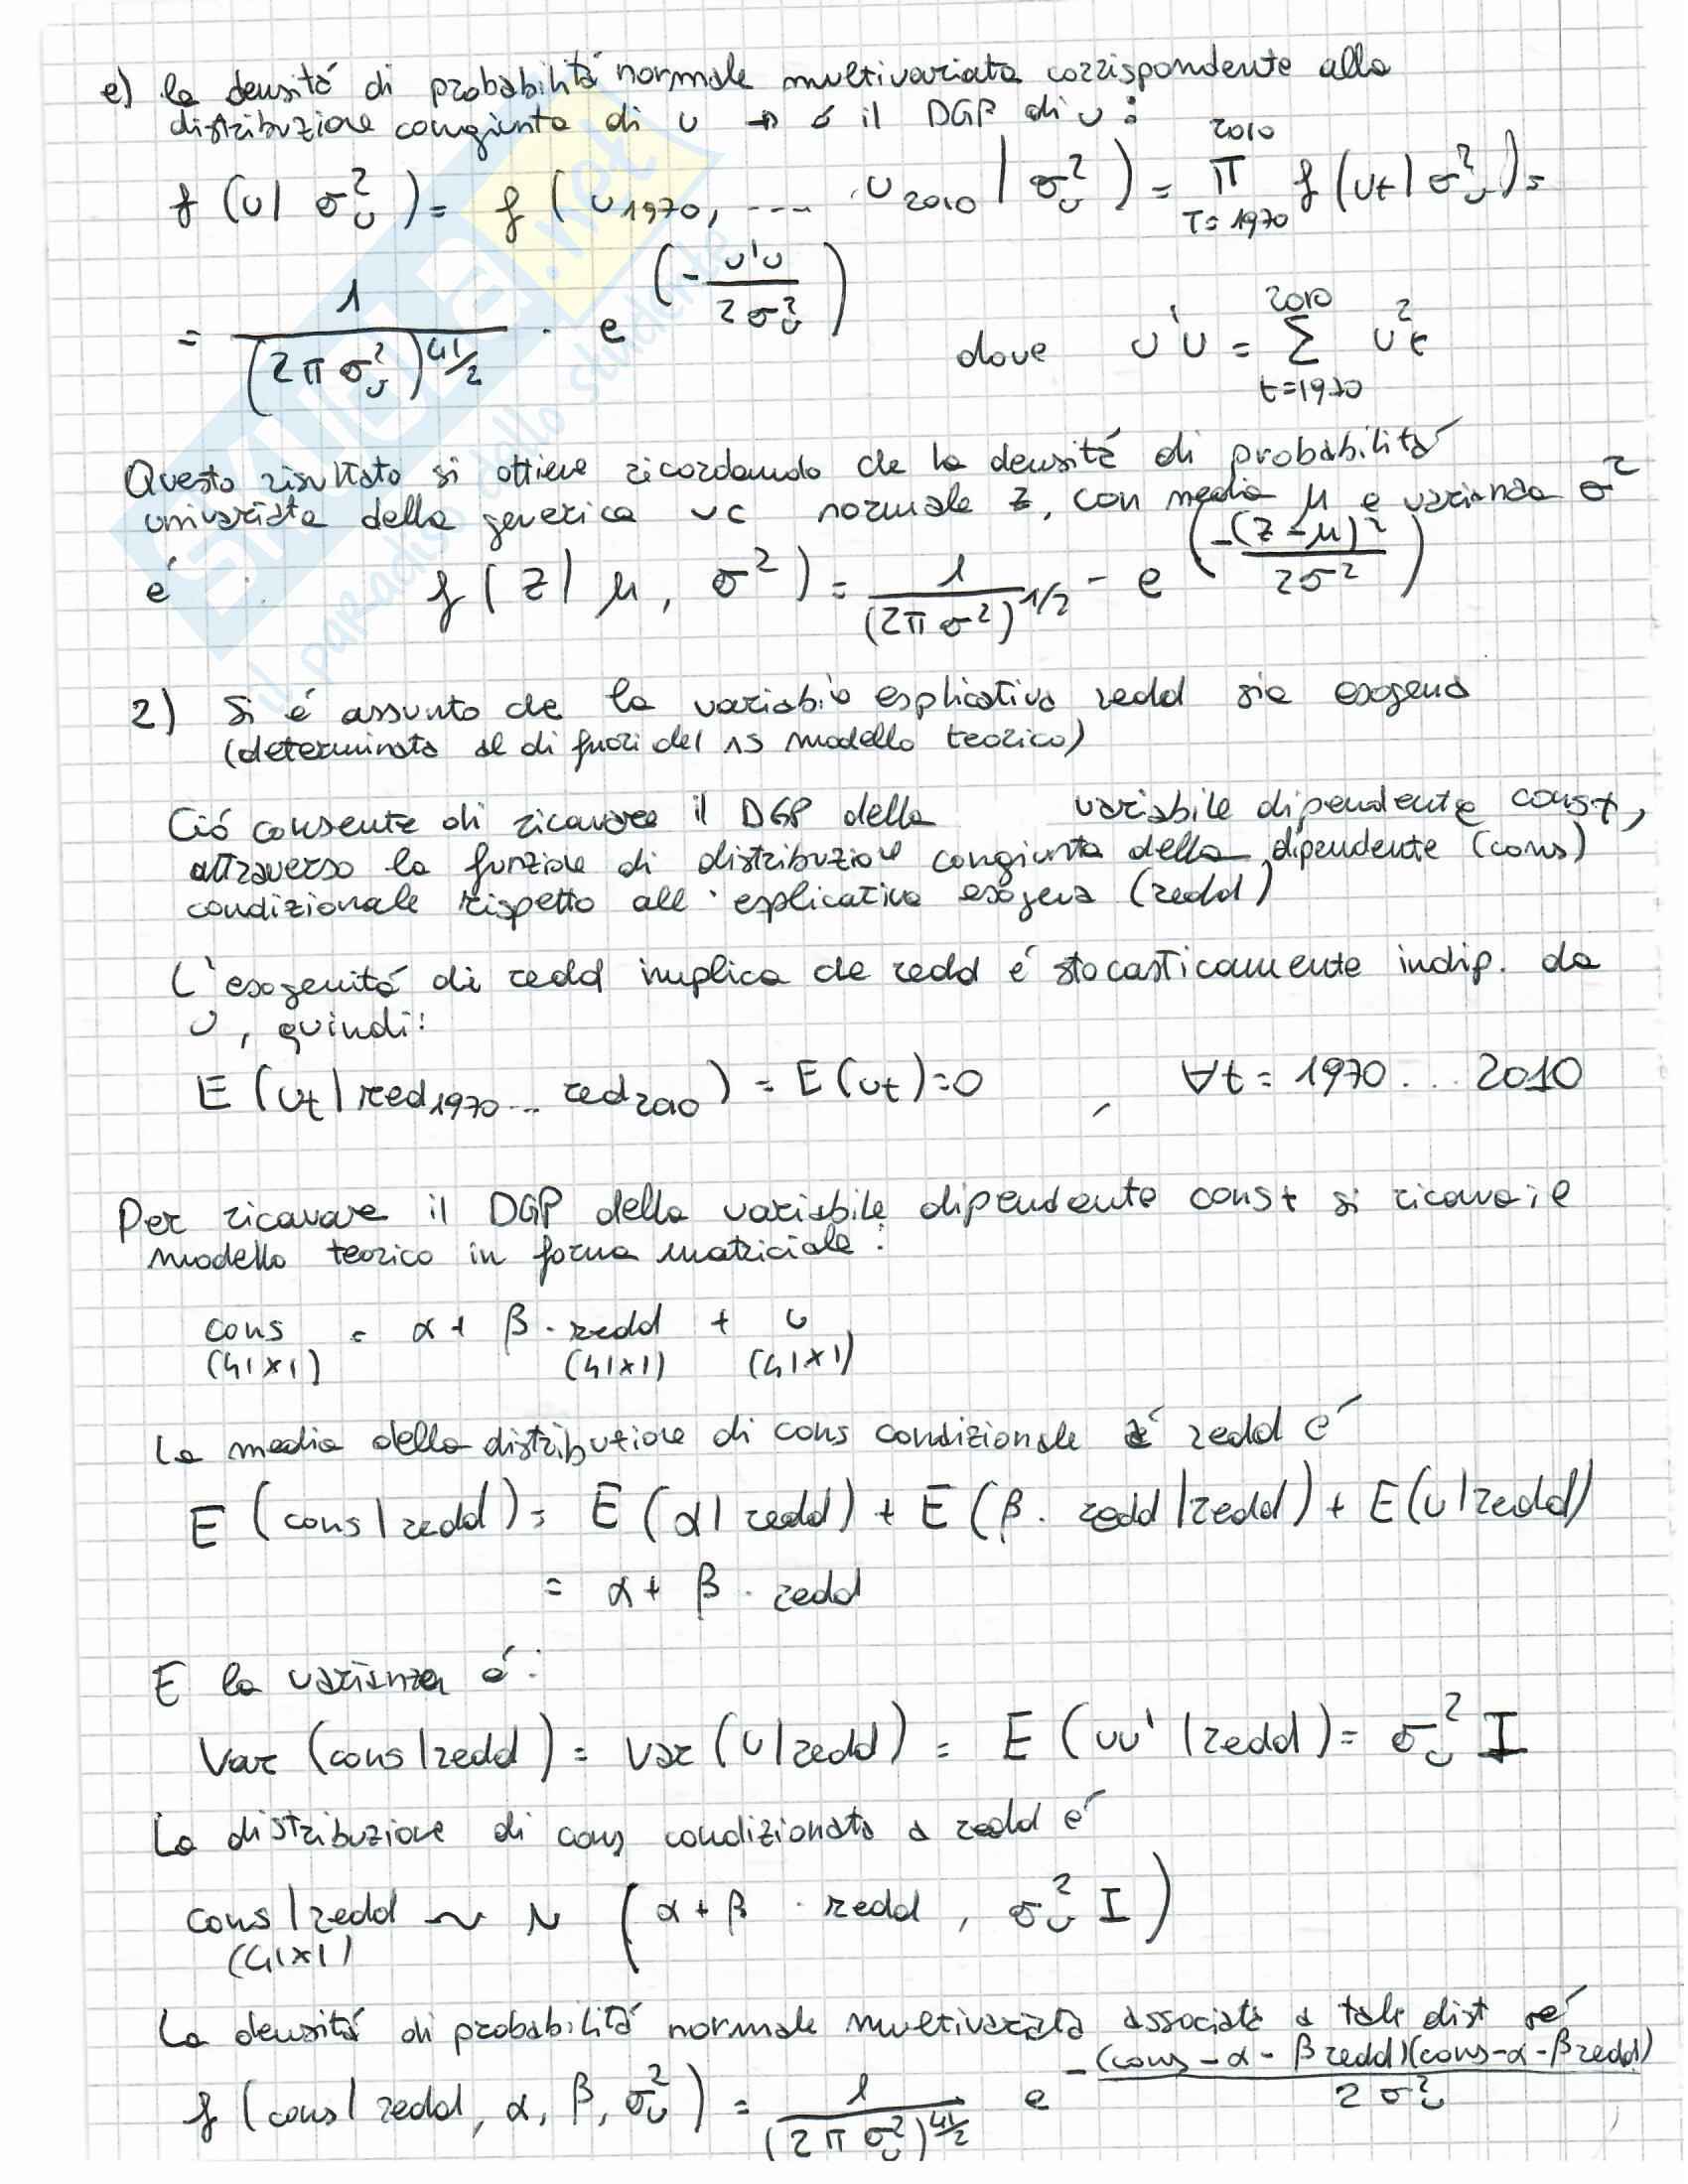 e) la densità di probabilità normale multivariata corrispondente alla
distribuzione congiunta di u → è il DGP di u :
f (u | σ²ᵤ) = f ( u 1970, .... u 2010 | σ²ᵤ ) = 2010 π T=1970 f (ut | σ²ᵤ) =
= 1 / (2π σ²ᵤ)^41/2 · e^(- u'u / 2σ²ᵤ) dove u'u = 2010 Σ t=1970 u²t
Questo risultato si ottiene ricordando che la densità di probabilità
univariata della generica vc normale z, con media μ e varianza σ²
è f ( z | μ, σ² ) = 1 / (2π σ²)^1/2 - e^(-(z-μ)² / 2σ²)
2) Si è assunto che la variabile esplicativa redd sia esogena
(determinata al di fuori del ns modello teorico)
Ciò consente di ricavare il DGP della variabile dipendente const,
attraverso la funzione di distribuzione congiunta della dipendente (cons)
condizionale rispetto all'esplicativa esogena (redd)
L'esogenità di redd implica che redd è stocasticamente indip. da
u, quindi:
E (ut | red1970... red2010) = E (ut) = 0 , ∀t = 1970 ... 2010
Per ricavare il DGP della variabile dipendente const si ricava il
modello teorico in forma matriciale :
cons = α + β · redd + u
(41x1) (41x1) (41x1)
La media della distribuzione di cons condizionale a redd è
E (cons | redd) = E (α | redd) + E (β · redd | redd) + E (u | redd)
= α + β · redd
E la varianza è :
Var (cons | redd) = Var (u | redd) = E (uu' | redd) = σ²ᵤ I
La distribuzione di cons condizionata a redd è
cons | redd ~ N (α + β · redd , σ²ᵤ I)
(41x1)
La densità di probabilità normale multivariata associata a tale dist è
f (cons | redd, α, β, σ²ᵤ) = 1 / (2π σ²ᵤ)^41/2 e^-(cons - α - β redd)(cons - α - β redd) / 2σ²ᵤ
skuola.net
il paradiso dello studente